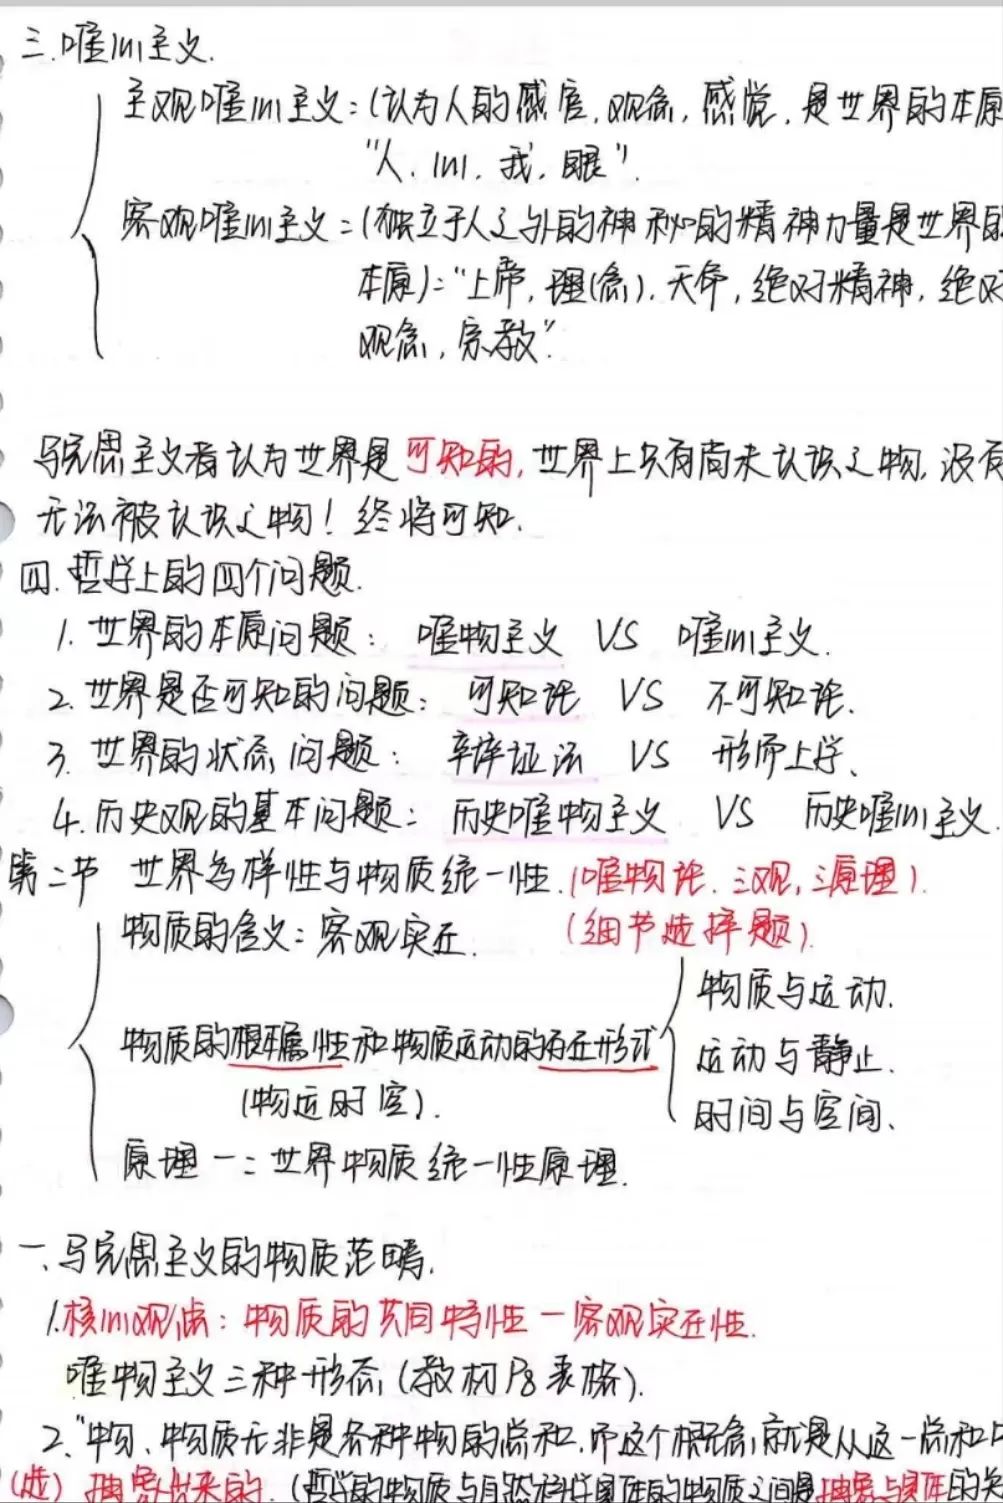 三.唯心主义.
主观唯心主义:(认为人的感官,观念,感觉,是世界的本原
"人,心,我,眼".
客观唯心主义=(独立于人之外的神秘的精神力量是世界的
本原):"上帝,理(念),天命,绝对精神,绝对
观念,宗教".
马克思主义者认为世界是可知的,世界上只有尚未认识之物,没有
无法被认识之物!终将可知.
四.哲学上的四个问题.
1.世界的本原问题: 唯物主义 VS 唯心主义.
2.世界是否可知的问题: 可知论 VS 不可知论.
3.世界的状态问题: 辩证法 VS 形而上学、
4.历史观的基本问题: 历史唯物主义 VS 历史唯心主义.
第二节 世界多样性与物质统一性.(唯物论.三观,三原理).
物质的含义:客观实在. (细节选择题).
物质与运动.
物质的根本属性和物质运动的存在形式
运动与静止.
(物运时空).
时间与空间、
原理一:世界物质统一性原理.
一、马克思主义的物质范畴.
1.核心观点:物质的共同特性一客观实在性.
唯物主义三种形态(教材P8表格).
2."物、物质无非是各种物的总和,而这个概念,就是从这一总和中
(选) 抽象出来的.(哲学的物质与自然科学具体的物质之间是抽象与具体的关